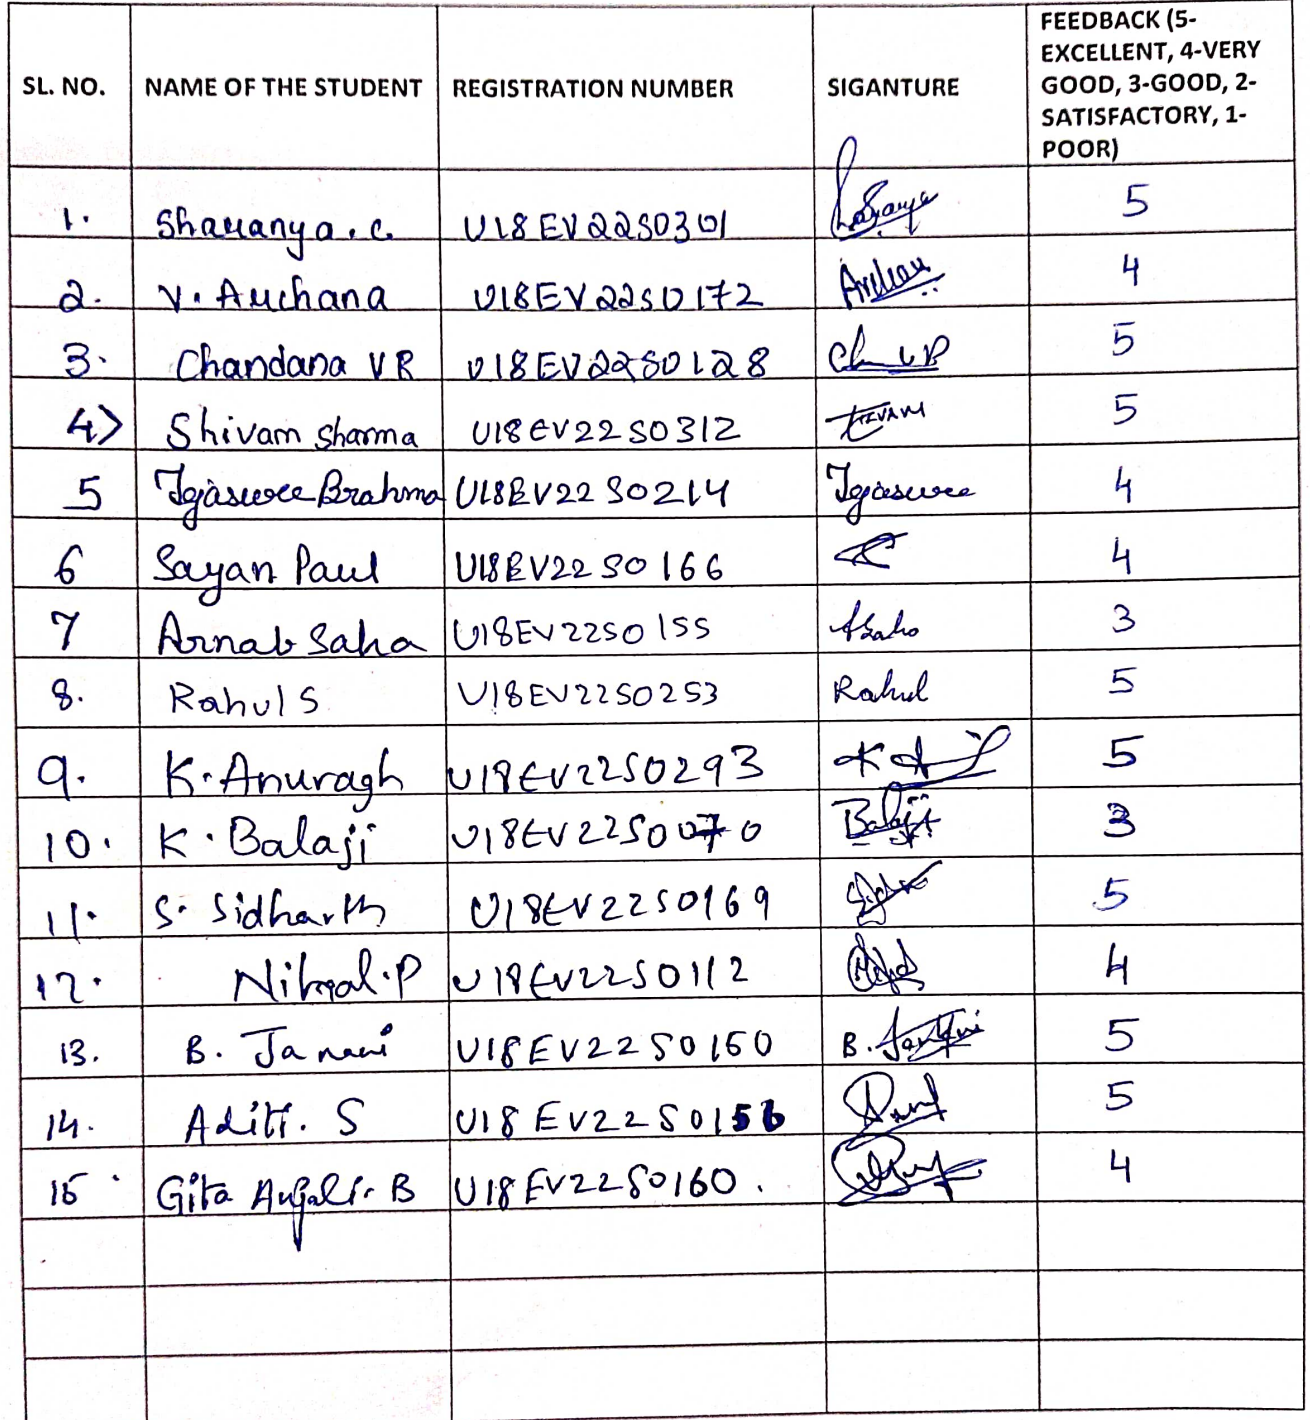 SL. NO. NAME OF THE STUDENT REGISTRATION NUMBER SIGANTURE FEEDBACK (5-
EXCELLENT, 4-VERY
GOOD, 3-GOOD, 2-
SATISFACTORY, 1-
POOR)
1. Sharanya . C. U18EV22S0301 5
2. V. Archana U18EV22S0172 4
3. Chandana V R U18EV22S0128 5
4> Shivam Sharma U18EV22S0312 SHIVAM 5
5 Tejaswee Brahma U18EV22S0214 Tejaswee 4
6 Sayan Paul U18EV22S0166 4
7 Arnab Saha U18EV22S0155 ASaha 3
8. Rahul S U18EV22S0253 Rahul 5
9. K. Anuragh U18EV22S0293 5
10. K. Balaji U18EV22S0070 Balaji 3
11. S. Sidharth U18EV22S0169 5
12. P U18EV22S0112 4
13. B. Janani U18EV22S0150 B. 5
14. Aditi. S U18EV22S0156 5
15. Gita Anjali. B U18EV22S0160. 4